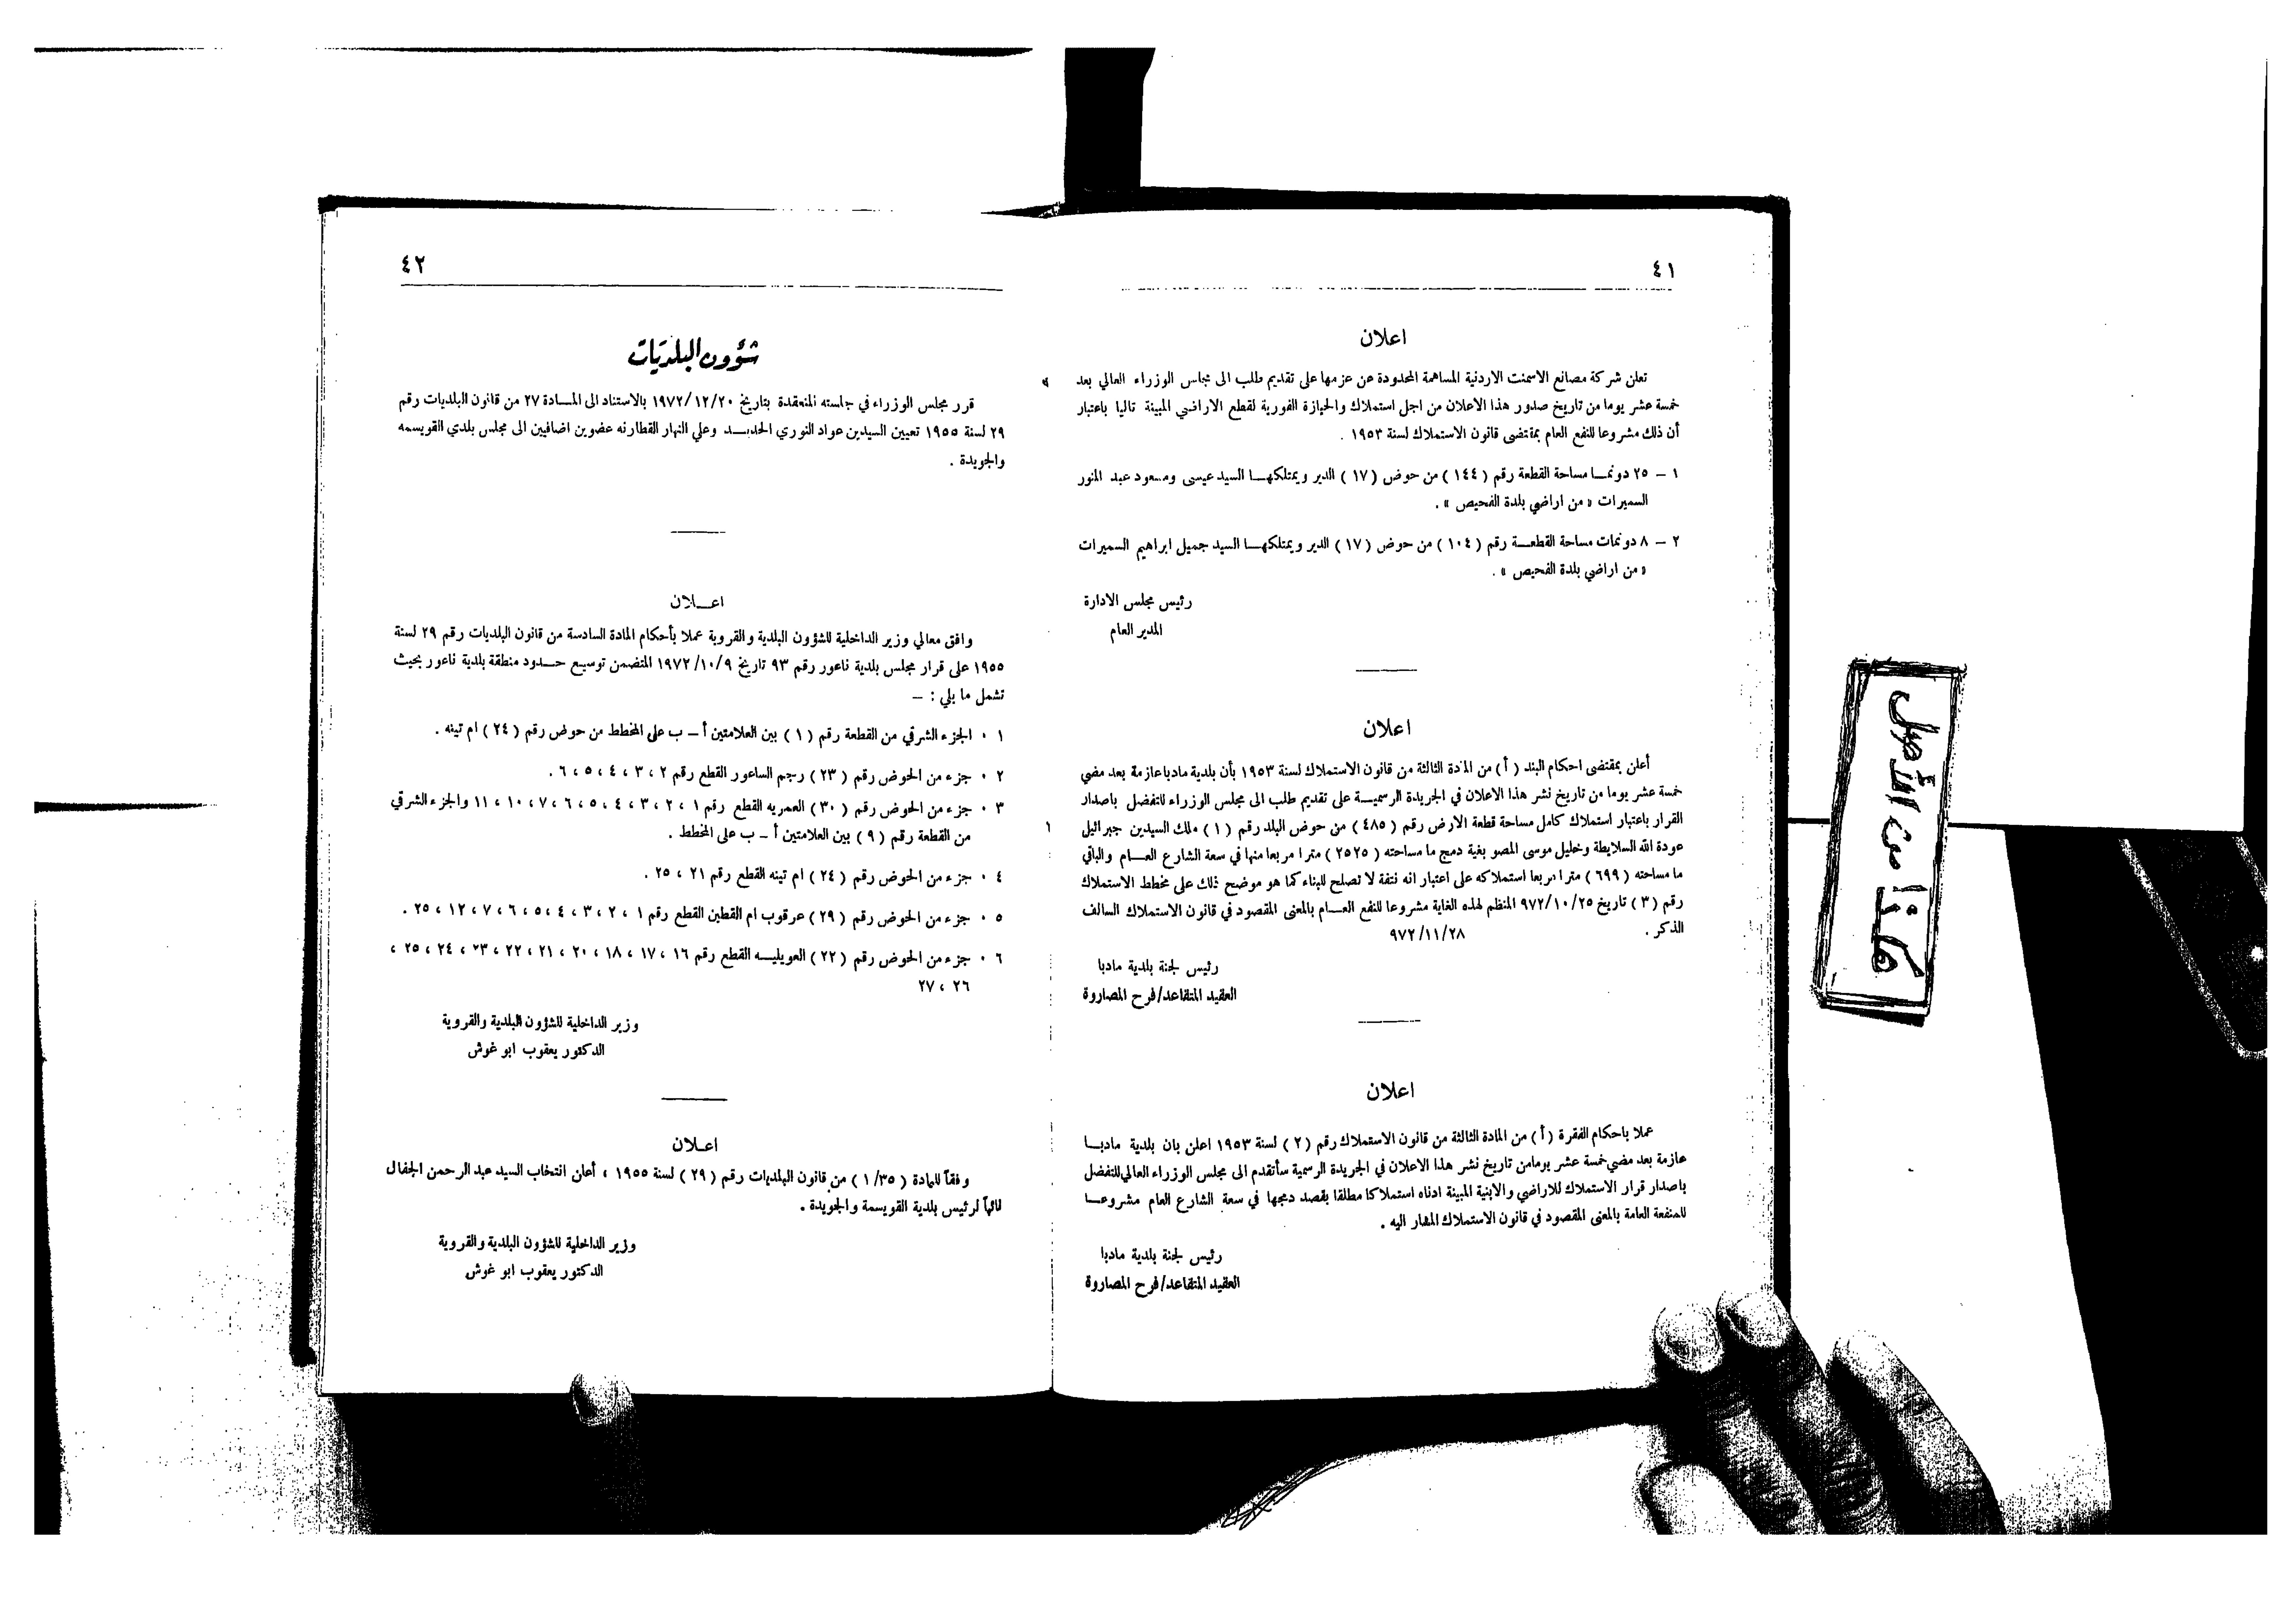 ٤١
اعلان
تعلن شركة مصانع الاسمنت الاردنية المساهمة المحدودة عن عزمها على تقديم طلب الى مجلس الوزراء العالي بعد
خمسة عشر يوما من تاريخ صدور هذا الاعلان من اجل استملاك والحيازة الفورية لقطع الاراضي المبينة تاليا باعتبار
أن ذلك مشروعا للنفع العام بمقتضى قانون الاستملاك لسنة ١٩٥٣ .
١ – ٢٥ دونمـا مساحة القطعة رقم ( ١٤٤ ) من حوض ( ١٧ ) الدير ويمتلكهـا السيد عيسى ومسعود عبد المنور
السميرات « من اراضي بلدة الفحيص » .
٢ – ٨ دونمات مساحة القطعـة رقم ( ١٠٤ ) من حوض ( ١٧ ) الدير ويمتلكهـا السيد جميل ابراهيم السميرات
« من اراضي بلدة الفحيص » .
رئيس مجلس الادارة
المدير العام
اعلان
أعلن بمقتضى احكام البند ( أ ) من المادة الثالثة من قانون الاستملاك لسنة ١٩٥٣ بأن بلدية مادبا عازمة بعد مضي
خمسة عشر يوما من تاريخ نشر هذا الاعلان في الجريدة الرسميـة على تقديم طلب الى مجلس الوزراء للتفضل باصدار
القرار باعتبار استملاك كامل مساحة قطعة الارض رقم ( ٤٨٥ ) من حوض البلد رقم ( ١ ) ملك السيدين جبرائيل
عودة الله السلايطة وخليل موسى المصو بغية دمج ما مساحته ( ٢٥٢٥ ) مترا مربعا منها في سعة الشارع العـام والباقي
ما مساحته ( ٦٩٩ ) مترا مربعا استملاكه على اعتبار انه نتفة لا تصلح للبناء كما هو موضح ذلك على مخطط الاستملاك
رقم ( ٣ ) تاريخ ٩٧٢/١٠/٢٥ المنظم لهذه الغاية مشروعا للنفع العـام بالمعنى المقصود في قانون الاستملاك السالف
الذكر . ٩٧٢/١١/٢٨
رئيس لجنة بلدية مادبا
العقيد المتقاعد/فرح المصاروة
اعلان
عملا باحكام الفقرة ( أ ) من المادة الثالثة من قانون الاستملاك رقم ( ٢ ) لسنة ١٩٥٣ اعلن بان بلدية مادبـا
عازمة بعد مضي خمسة عشر يومامن تاريخ نشر هذا الاعلان في الجريدة الرسمية سأتقدم الى مجلس الوزراء العالي للتفضل
باصدار قرار الاستملاك للاراضي والابنية المبينة ادناه استملاكا مطلقا بقصد دمجها في سعة الشارع العام مشروعـا
للمنفعة العامة بالمعنى المقصود في قانون الاستملاك المشار اليه .
رئيس لجنة بلدية مادبا
العقيد المتقاعد/فرح المصاروة
٤٢
شؤون البلديات
قرر مجلس الوزراء في جلسته المنعقدة بتاريخ ١٩٧٢/١٢/٢٠ بالاستناد الى المـادة ٢٧ من قانون البلديات رقم
٢٩ لسنة ١٩٥٥ تعيين السيدين عواد النوري الحديـد وعلي النهار القطارنه عضوين اضافيين الى مجلس بلدي القويسمه
والجويدة .
اعـلان
وافق معالي وزير الداخلية للشؤون البلدية والقروية عملا بأحكام المادة السادسة من قانون البلديات رقم ٢٩ لسنة
١٩٥٥ على قرار مجلس بلدية ناعور رقم ٩٣ تاريخ ١٩٧٢/١٠/٩ المتضمن توسيع حـدود منطقة بلدية ناعور بحيث
تشمل ما يلي : –
١ ٠ الجزء الشرقي من القطعة رقم ( ١ ) بين العلامتين أ – ب على المخطط من حوض رقم ( ٢٤ ) ام تينه .
٢ ٠ جزء من الحوض رقم ( ٢٣ ) رجم الساعور القطع رقم ٢ ، ٣ ، ٤ ، ٥ ، ٦ .
٣ ٠ جزء من الحوض رقم ( ٣٠ ) العمريه القطع رقم ١ ، ٢ ، ٣ ، ٤ ، ٥ ، ٦ ، ٧ ، ١٠ ، ١١ والجزء الشرقي
من القطعة رقم ( ٩ ) بين العلامتين أ – ب على المخطط .
٤ ٠ جزء من الحوض رقم ( ٢٤ ) ام تينه القطع رقم ٢١ ، ٢٥ .
٥ ٠ جزء من الحوض رقم ( ٢٩ ) عرقوب ام القطين القطع رقم ١ ، ٢ ، ٣ ، ٤ ، ٥ ، ٦ ، ٧ ، ١٢ ، ٢٥ .
٦ ٠ جزء من الحوض رقم ( ٢٢ ) العويليـه القطع رقم ١٦ ، ١٧ ، ١٨ ، ٢٠ ، ٢١ ، ٢٢ ، ٢٣ ، ٢٤ ، ٢٥ ،
٢٦ ، ٢٧
وزير الداخلية للشؤون البلدية والقروية
الدكتور يعقوب ابو غوش
اعـلان
وفقاً للمادة ( ١/٣٥ ) من قانون البلديات رقم ( ٢٩ ) لسنة ١٩٥٥ ، أعلن انتخاب السيد عبد الرحمن الجفال
نائباً لرئيس بلدية القويسمة والجويدة .
وزير الداخلية للشؤون البلدية والقروية
الدكتور يعقوب ابو غوش
هكذا من الأصل